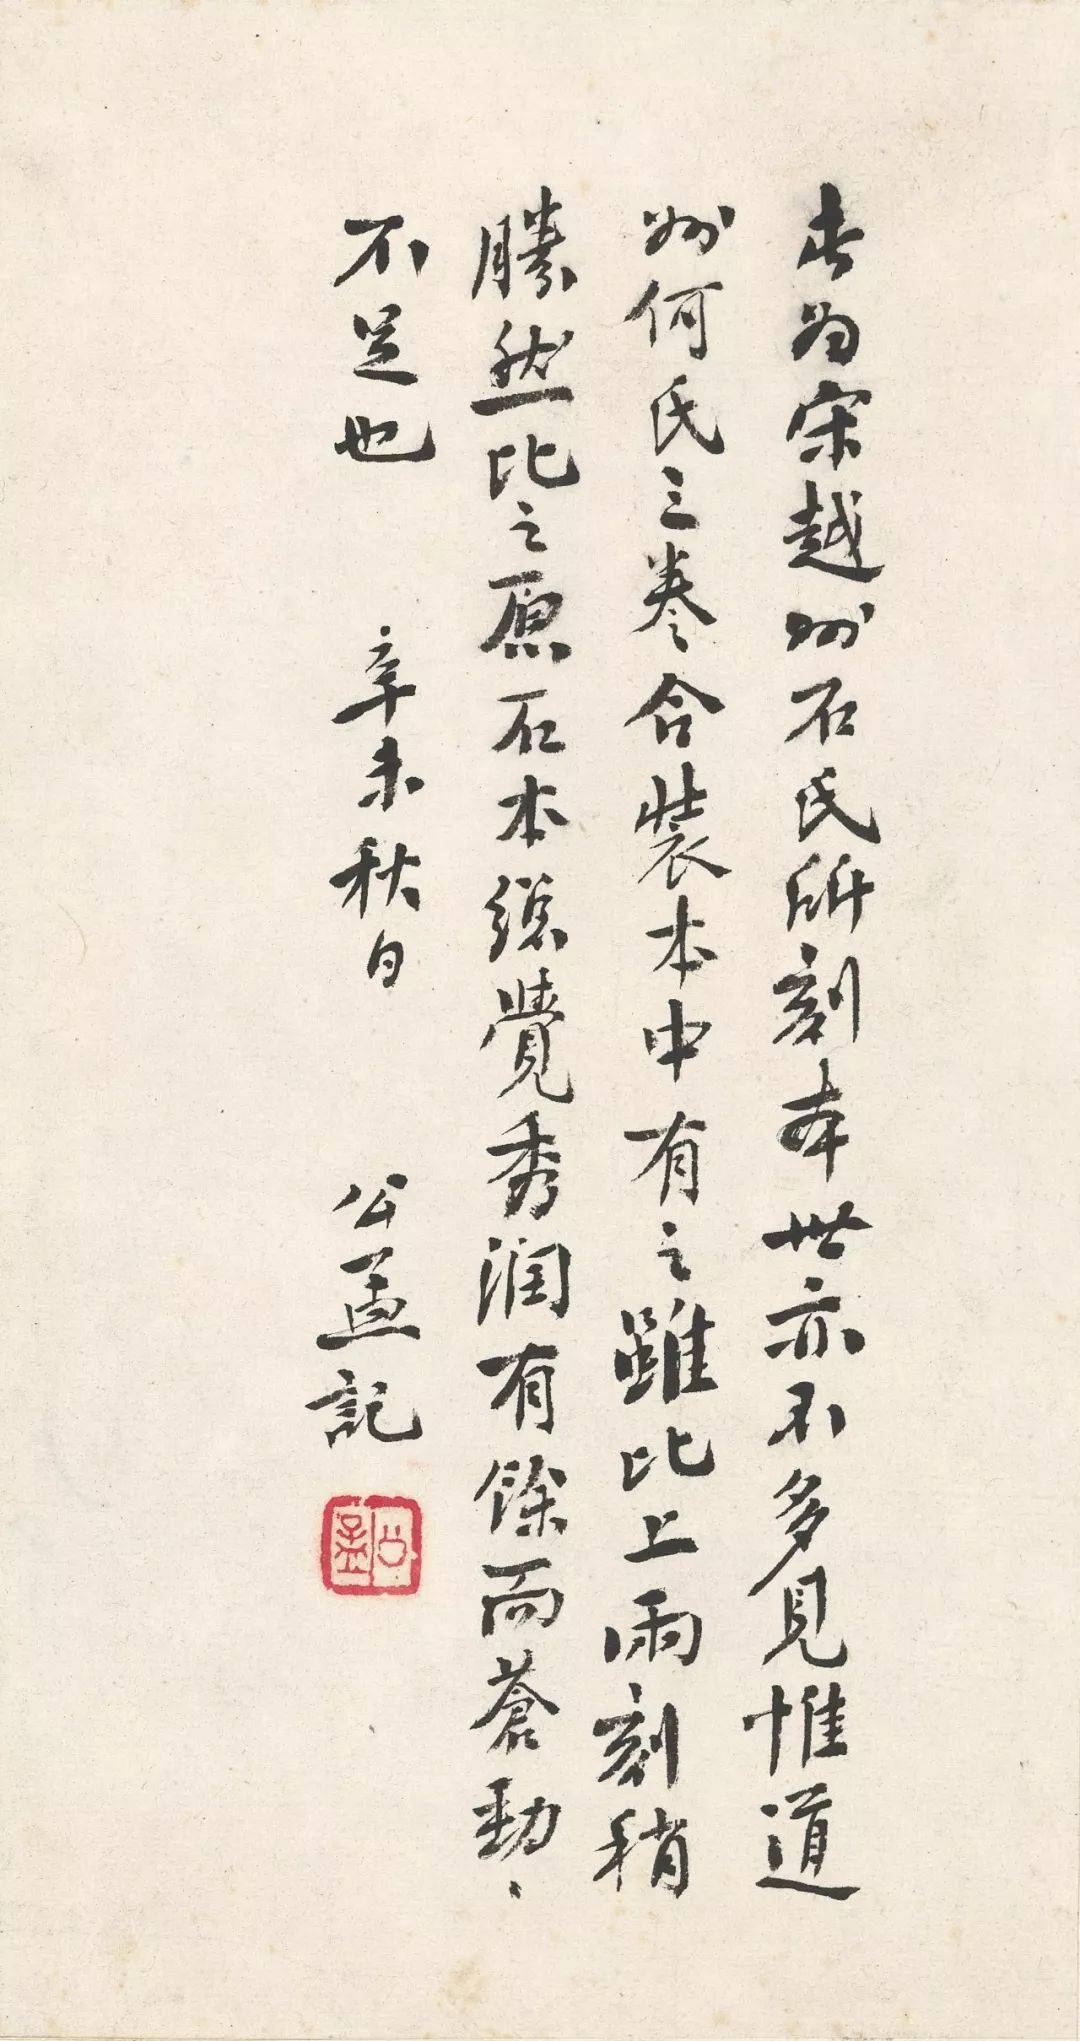 此为宋越州石氏所刻本世亦不多見惟道
州何氏三卷合裝本中有之雖比上兩刻稍
勝然比之原石本總覺秀潤有餘而蒼勁
不足也 辛未秋日 公孟記
公孟